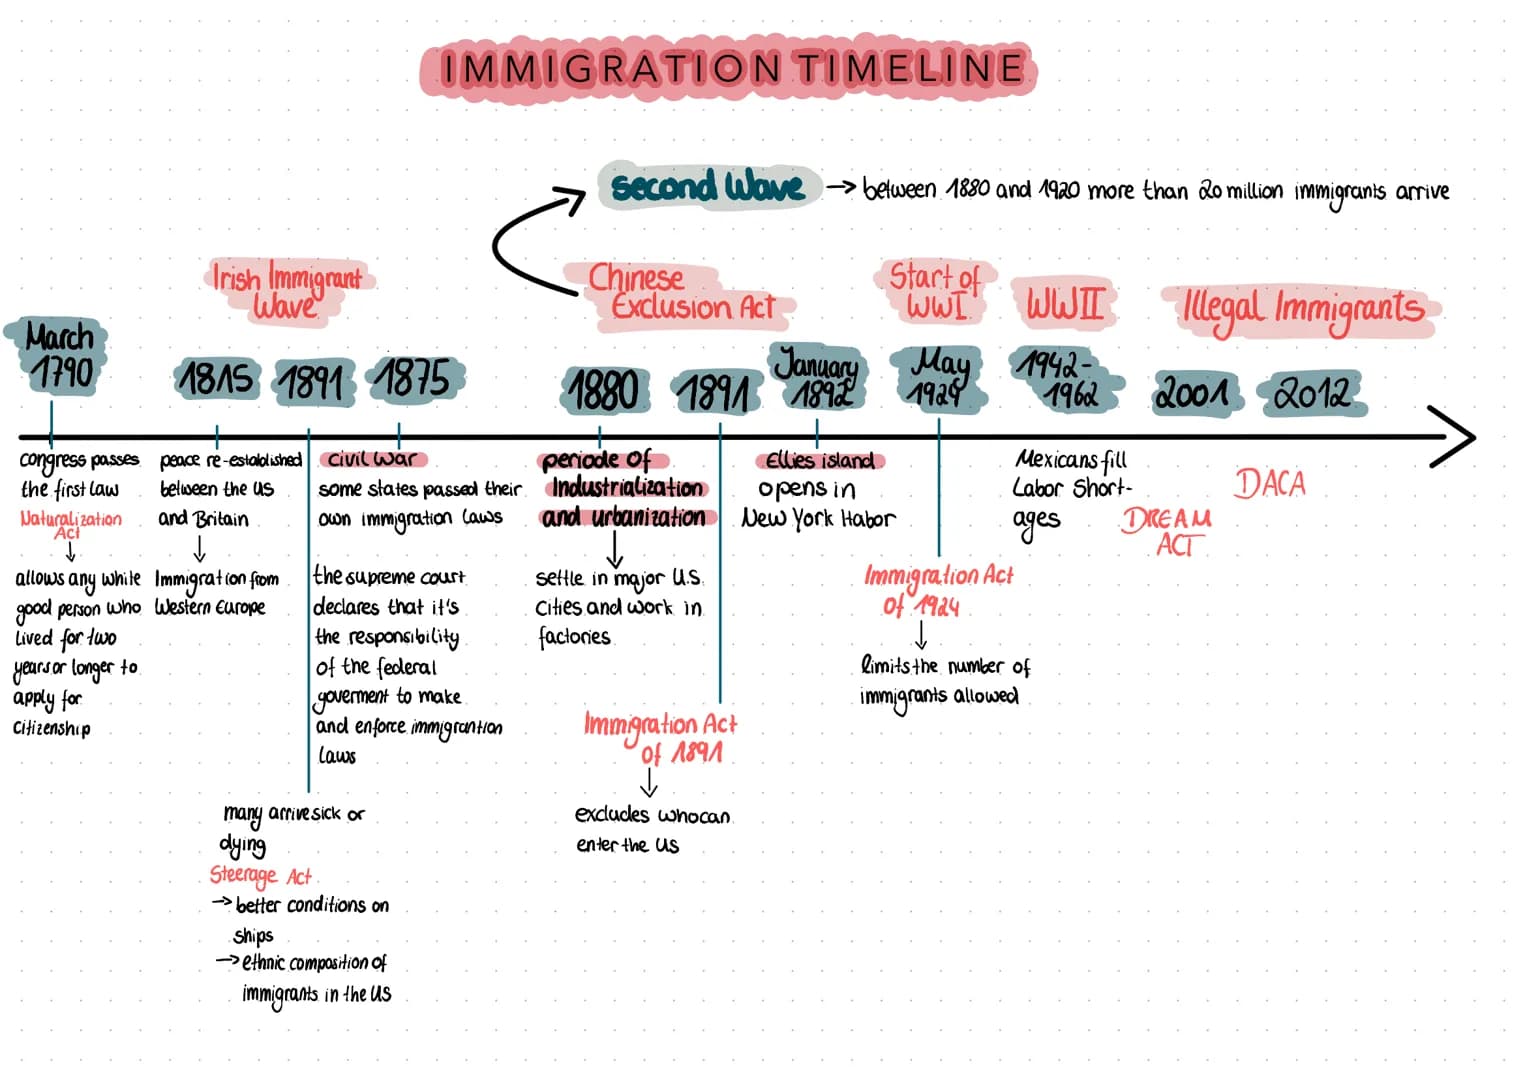 IMMIGRATION TIMELINE
second Wave → between 1880 and 1920 more than 20 million immigrants arrive
Irish Immigrant
Wave
Chinese
Exclusion Act
Start of
WWI
WWII
Illegal Immigrants
March
1790
1815
1891
1875
1880
1891
January
1892
May
1924
1942-
1962
2001
2012
congress passes
the first law
Naturalization
Act
↓
allows any while
good person who
lived for two
years or longer to
apply for
citizenship
peace re-established
between the US
and Britain
↓
Immigration from
Western Europe
many arrive sick or
dying
Steerage Act
→ better conditions on
ships
→ ethnic composition of
immigrants in the US
civil war
some states passed their
own immigration laws
the supreme court
declares that it's
the responsibility
of the federal
goverment to make
and enforce immigrantion
laws
periode of
Industrialization
and urbanization
↓
settle in major U.S.
cities and work in
factories
Immigration Act
of 1891
↓
excludes who can
enter the US
Ellies island
opens in
New York Habor
Immigration Act
of 1924
↓
limits the number of
immigrants allowed
Mexicans fill
Labor Short-
ages
DREAM
ACT
DACA